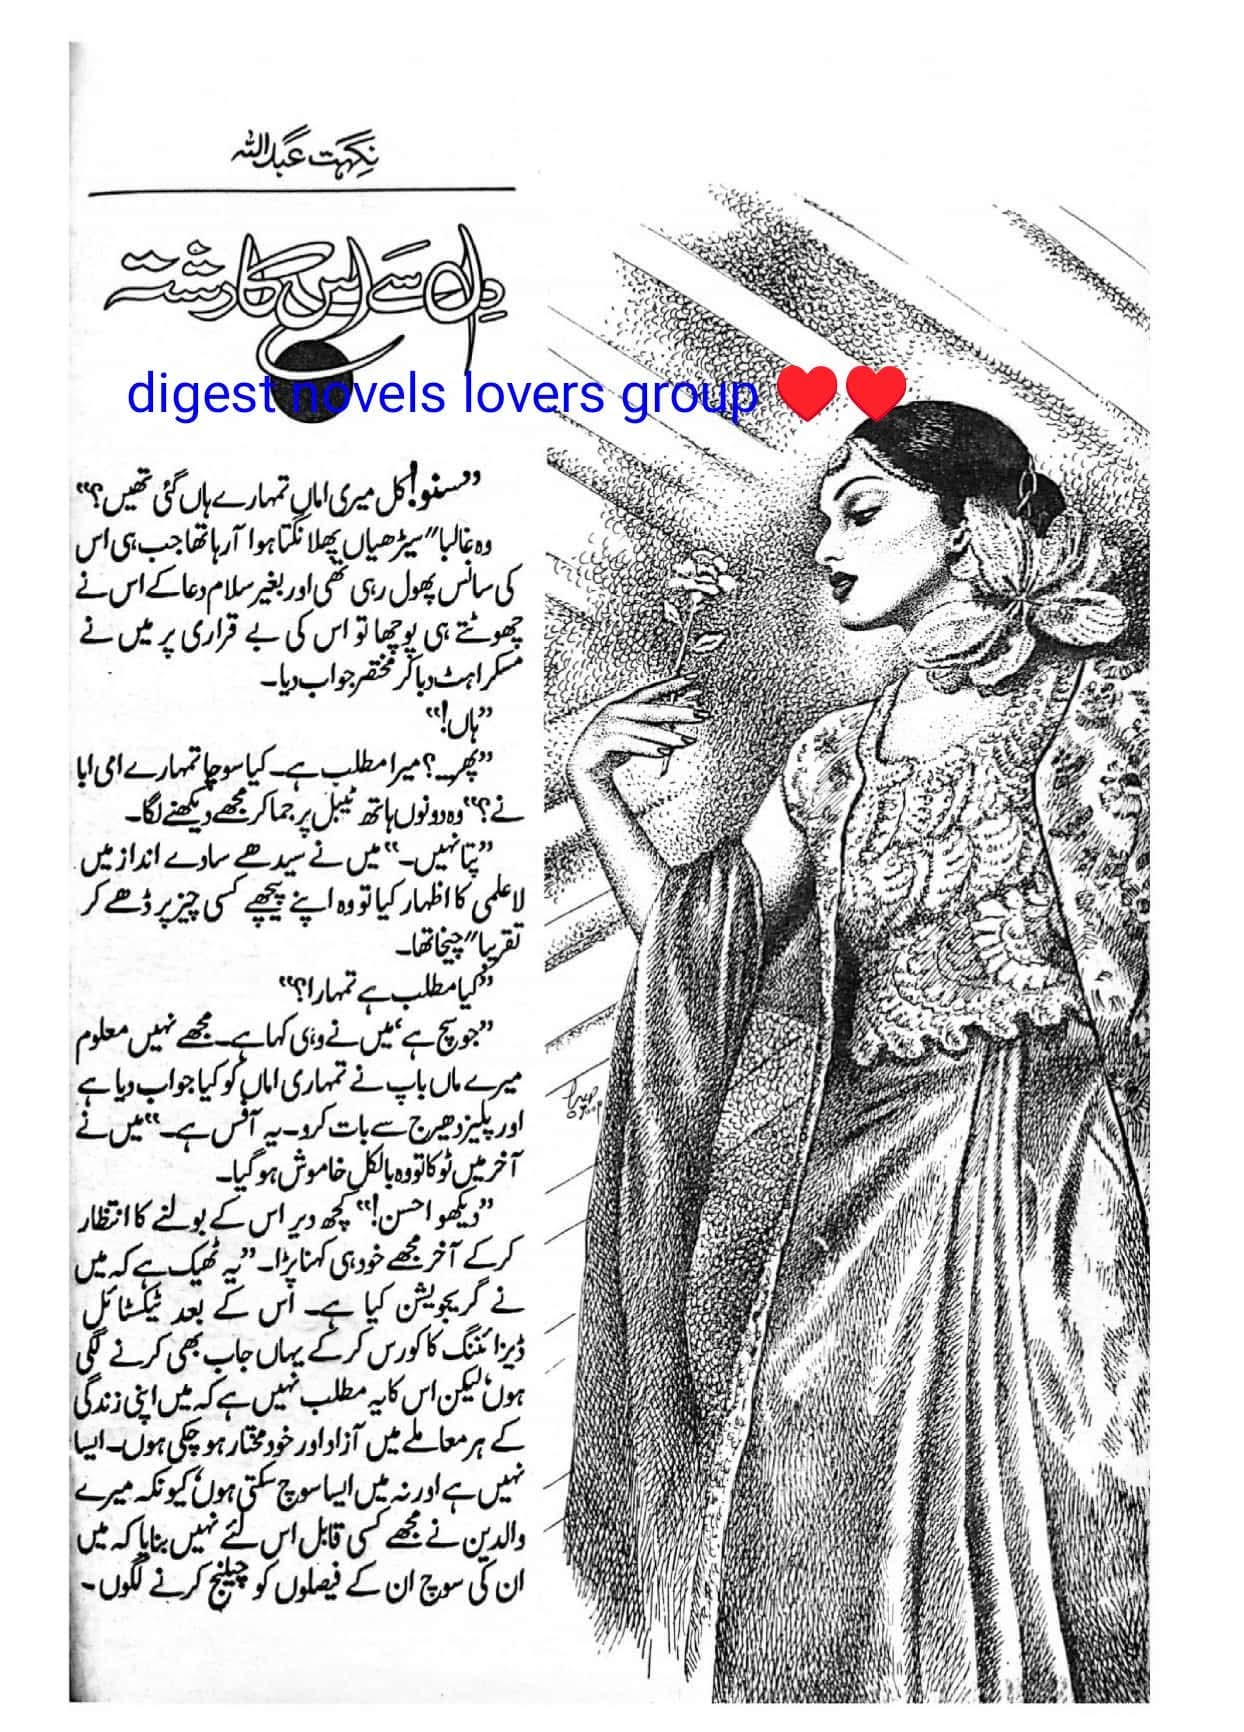 نگہت عبداللہ
دل سے اس کا رشتہ
digest novels lovers group ❤️❤️
”سنو! کل میری اماں تمہارے ہاں گئی تھیں؟“
وہ غالباً سیڑھیاں پھلانگتا ہوا آ رہا تھا جب ہی اس
کی سانس پھول رہی تھی اور بغیر سلام دعا کے اس نے
چھوٹتے ہی پوچھا تو اس کی بے قراری پر میں نے
مسکراہٹ دبا کر مختصر جواب دیا۔
”ہاں!“
”پھر۔۔؟ میرا مطلب ہے۔ کیا سوچا تمہارے امی ابا
نے؟“ وہ دونوں ہاتھ ٹیبل پر جما کر مجھے دیکھنے لگا۔
”پتا نہیں۔“ میں نے سیدھے سادے انداز میں
لاعلمی کا اظہار کیا تو وہ اپنے پیچھے کسی چیز پر ڈھے کر
تقریباً چیخا تھا۔
”کیا مطلب ہے تمہارا؟“
”جو سچ ہے‘ میں نے وہی کہا ہے۔ مجھے نہیں معلوم
میرے ماں باپ نے تمہاری اماں کو کیا جواب دیا ہے
اور پلیز دھیرج سے بات کرو۔ یہ آفس ہے۔“ میں نے
آخر میں ٹوکا تو وہ بالکل خاموش ہو گیا۔
”دیکھو احسن!“ کچھ دیر اس کے بولنے کا انتظار
کر کے آخر مجھے خود ہی کہنا پڑا۔ ”یہ ٹھیک ہے کہ میں
نے گریجویشن کیا ہے۔ اس کے بعد ٹیکسٹائل
ڈیزائننگ کا کورس کر کے یہاں جاب بھی کرنے لگی
ہوں‘ لیکن اس کا یہ مطلب نہیں ہے کہ میں اپنی زندگی
کے ہر معاملے میں آزاد اور خود مختار ہو چکی ہوں۔ ایسا
نہیں ہے اور نہ میں ایسا سوچ سکتی ہوں‘ کیونکہ میرے
والدین نے مجھے کسی قابل اس لئے نہیں بنایا کہ میں
ان کی سوچ ان کے فیصلوں کو چیلنج کرنے لگوں۔